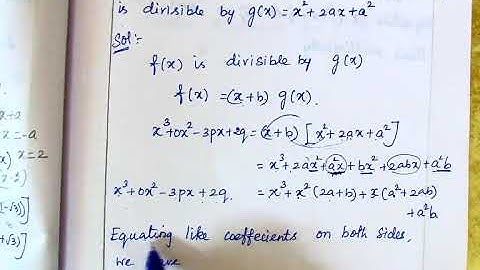 is divisible by g(x) = x² + 2ax + a²
Sol:-
f(x) is divisible by g(x)
f(x) = (x+b) g(x).
x³+0x²-3px+2q = (x+b) [x²+2ax+a²]
= x³+2ax²+a²x+bx²+2abx+a²b
x³+0x²-3px+2q. = x³+x²(2a+b)+x(a²+2ab)
+a²b
Equating like coeffecients on both sides,
we have
x=-a
x=2